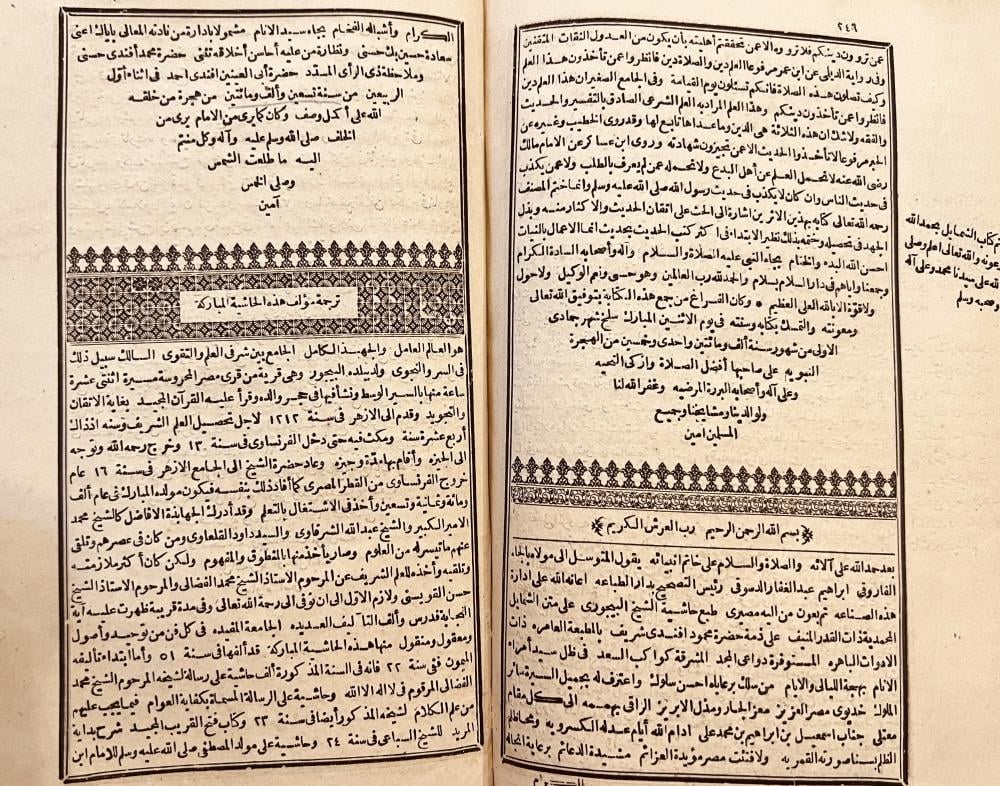 ٢٤٦
عن ترون دينكم فلا ترووه الا عمن تحققتم أهليته بأن يكون من العدول الثقات المتقنين
وفى رواية الديلى عن ابن عمر مرفوعا العلم دين والصلاة دين فانظروا عمن تأخذون هذا العلم
وكيف تصلون هذه الصلاة فانكم تسئلون يوم القيامة وفى الجامع الصغير ان هذا العلم دين
فانظروا عمن تأخذون دينكم وهذا العلم المراد به العلم الشرعى الصادق بالتفسير والحديث
والفقه ولا شك ان هذه الثلاثة هى الدين وما عداها تابع لها وقد روى الخطيب وغيره عن
الحبر مرفوعا لا تأخذوا الحديث الا عمن تجيزون شهادته وروى ابن عساكر عن الامام مالك
رضى الله عنه لا تحمل العلم عن أهل البدع ولا تحمله عمن لم يعرف بالطلب ولا عمن يكذب
فى حديث الناس وان كان لا يكذب فى حديث رسول الله صلى الله عليه وسلم وانما ختم المصنف
رحمه الله تعالى كتابه بهذين الاثرين اشارة الى الحث على اتقان الحديث والاكثار منه وبذل
الجهد فى تحصيله وختمه بذلك نظير الابتداء فى أكثر كتب الحديث بحديث انما الاعمال بالنيات
احسن الله البدء والختام بجاه النبى عليه الصلاة والسلام وآله وأصحابه السادة الكرام
وجمعنا واياهم فى دار السلام بسلام والحمد لله رب العالمين وهو حسبى ونعم الوكيل ولا حول
ولا قوة الا بالله العلى العظيم * وكان الفراغ من جمع هذه الكتابة بتوفيق الله تعالى
ومعونته والتمسك بكتابه وسنته فى يوم الاثنين المبارك سلخ شهر جمادى
الاولى من شهور سنة ألف ومائتين واحدى وخمسين من الهجرة
النبويه على صاحبها أفضل الصلاة وازكى التحيه
وعلى آله وأصحابه البررة المرضيه وغفر الله لنا
ولوالدينا ومشايخنا وجميع
المسلمين امين
تم كتاب الشمايل بحمد الله
وعونه والله تعالى اعلم وصلى
الله على سيدنا محمد وعلى آله
وصحبه وسلم
بسم الله الرحمن الرحيم رب العرش الكريم
بعد حمد الله على آلائه والصلاة والسلام على خاتم انبيائه يقول المتوسل الى مولاه بالجاه
الفاروقى ابراهيم عبد الغفار الدسوقى رئيس التصحيح بدار الطباعه اعانه الله على ادارة
هذه الصناعه تم بعون من اليه مصيرى طبع حاشية الشيخ البيجورى على متن الشمايل
المحمدية ذات القدر المنيف على ذمة حضرة محمود افندى شريف بالمطبعة العامره ذات
الادوات الباهره المستوفرة دواعى المجد المشرقة كواكب السعد فى ظل سيد أمراء
الانام بهجة الليالى والايام من سلك برعاياه احسن سلوك واعترف له بجميل السيرة سائر
الملوك خديوى مصر العزيز معز الجار ومذل الابريز الراقى بهممه الى كل مقام
معتلى جناب اسمعيل بن ابراهيم بن محمد على ادام الله أيام عدله الكسرويه ومحا ظلم
الظلم بسنا صورته القمريه ولا فتئت مصر مؤيدة العزائم مشيدة الدعائم برعاية انجاله
الكرام
الكرام وأشباله الفخام بجاه سيد الانام مشمولا بادارة من نادته المعالى باياك اعنى
سعادة حسين بك حسنى ونظارة من عليه احاسن أخلاقه تثنى حضرة محمد أفندى حسنى
وملاحظة ذى الرأى المسدد حضرة أبى العينين افندى احمد فى اثناء أول
الربيعين من سنة تسعين وألف ومائتين من هجرة من خلقه
الله على أكمل وصف وكان كما يرى من الامام يرى من
الخلف صلى الله وسلم عليه وآله وكل منتم
اليه ما طلعت الشمس
وصلى الخمس
آمين
ترجمة مؤلف هذه الحاشية المباركة
هو العالم العامل والجهبذ الكامل الجامع بين شرفى العلم والتقوى السالك سبيل ذلك
فى السر والنجوى ولد ببلده البيجور وهى قرية من قرى مصر المحروسة مسيرة اثنتى عشرة
ساعة منها بالسير الوسط ونشأ فيها فى حجر والده وقرأ عليه القرآن المجيد بغاية الاتقان
والتجويد وقدم الى الازهر فى سنة ١٢١٢ لاجل تحصيل العلم الشريف وسنه اذ ذاك
أربع عشرة سنة ومكث فيه حتى دخل الفرنساوى فى سنة ١٣ وخرج رحمه الله وتوجه
الى الجيزه وأقام بها مدة وجيزه وعاد حضرة الشيخ الى الجامع الازهر فى سنة ١٦ عام
خروج الفرنساوى من القطر المصرى كما أفاد ذلك بنفسه فيكون مولده المبارك فى عام ألف
ومائة وثمانية وتسعين وأخذ فى الاشتغال بالتعلم وقد أدرك الجهابذة الافاضل كالشيخ محمد
الامير الكبير والشيخ عبد الله الشرقاوى والسيد داود القلعاوى ومن كان فى عصرهم وتلقى
عنهم ما تيسر له من العلوم وصار يأخذ منها بالمنطوق والمفهوم ولكن كان أكثر ملازمته
وتلقيه وأخذه للعلم الشريف عن المرحوم الاستاذ الشيخ محمد الفضالى والمرحوم الاستاذ الشيخ
حسن القويسنى ولازم الاول الى ان توفى الى رحمة الله تعالى وفى مدة قريبة ظهرت عليه آية
النجابة فدرس وألف التآليف العديده الجامعة المفيده فى كل فن من توحيد وأصول
ومعقول ومنقول منها هذه الحاشية المباركة قد ألفها فى سنة ٥١ وأما ابتداء تأليفه
الميمون ففى سنة ٢٢ فانه فى السنة المذكورة ألف حاشية على رسالة لشيخه المرحوم الشيخ محمد
الفضالى المرقوم فى لا اله الا الله وحاشية على الرسالة المسماة بكفاية العوام فيما يجب عليهم
من علم الكلام لشيخه المذكور أيضا فى سنة ٢٣ وكتاب فتح القريب المجيد شرح بداية
المريد للشيخ السباعى فى سنة ٢٤ وحاشية على مولد المصطفى صلى الله عليه وسلم للامام ابن